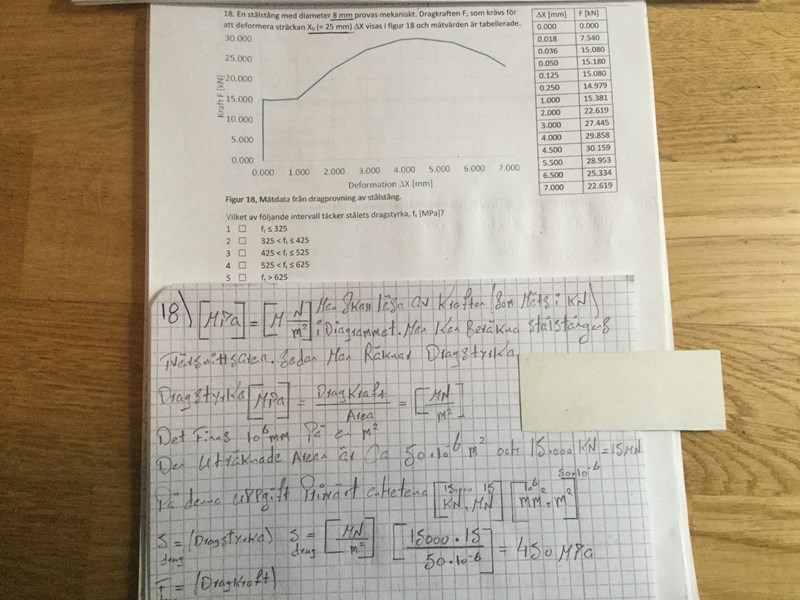 18. En stålstång med diameter 8 mm provas mekaniskt. Dragkraften F, som krävs för
att deformera sträckan X₀ (= 25 mm) ΔX visas i figur 18 och mätvärden är tabellerade.
30.000
25.000
20.000
15.000
10.000
5.000
0.000
Kraft F [kN]
0.000 1.000 2.000 3.000 4.000 5.000 6.000 7.000
Deformation ΔX [mm]
ΔX [mm] F [kN]
0.000 0.000
0.018 7.540
0.036 15.080
0.050 15.180
0.125 15.080
0.250 14.979
1.000 15.381
2.000 22.619
3.000 27.445
4.000 29.858
4.500 30.159
5.500 28.953
6.500 25.334
7.000 22.619
Figur 18, Mätdata från dragprovning av stålstång.
Vilket av följande intervall täcker stålets dragstyrka, fₜ [MPa]?
1 ☐ fₜ ≤ 325
2 ☐ 325 < fₜ ≤ 425
3 ☐ 425 < fₜ ≤ 525
4 ☐ 525 < fₜ ≤ 625
5 ☐ fₜ > 625
18) [MPa] = [M N/m²] Man skan läsa av Kraften (som Mäts i KN)
i Diagrammet. Man Kan Beräkna stålstångens
sedan Man Räknar Dragstyrka
Dragstyrka [MPa] = DragKraft / Area = [MN / m²]
Det Finns 10⁶ mm På en m²
Den Uträknade Arean är Ca 50·10⁻⁶ m² och 15.000 KN = 15 MN
På denna uppgift enhetena [15.000 15 KN, MN] [10⁶ 50·10⁻⁶ mm², m²]
S drag = (Dragstyrka) S drag = [MN / m²] [15000·15 / 50·10⁻⁶] = 450 MPa
F = (DragKraft)